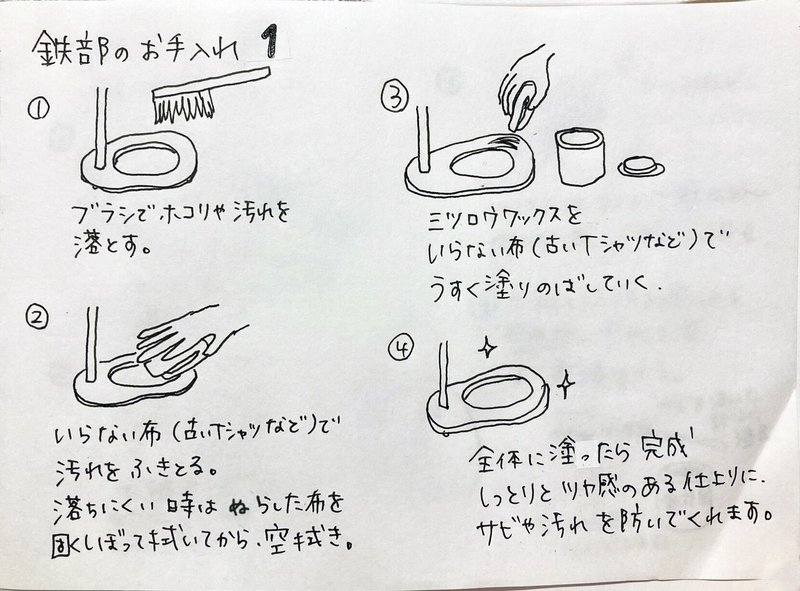 鉄部のお手入れ 1
①
ブラシでホコリや汚れを
落とす。
②
いらない布(古いTシャツなど)で
汚れをふきとる。
落ちにくい時はぬらした布を
固くしぼって拭いてから、空拭き。
③
ミツロウワックスを
いらない布(古いTシャツなど)で
うすく塗りのばしていく.
④
全体に塗ったら完成
しっとりとツヤ感のある仕上りに、
サビや汚れを防いでくれます。